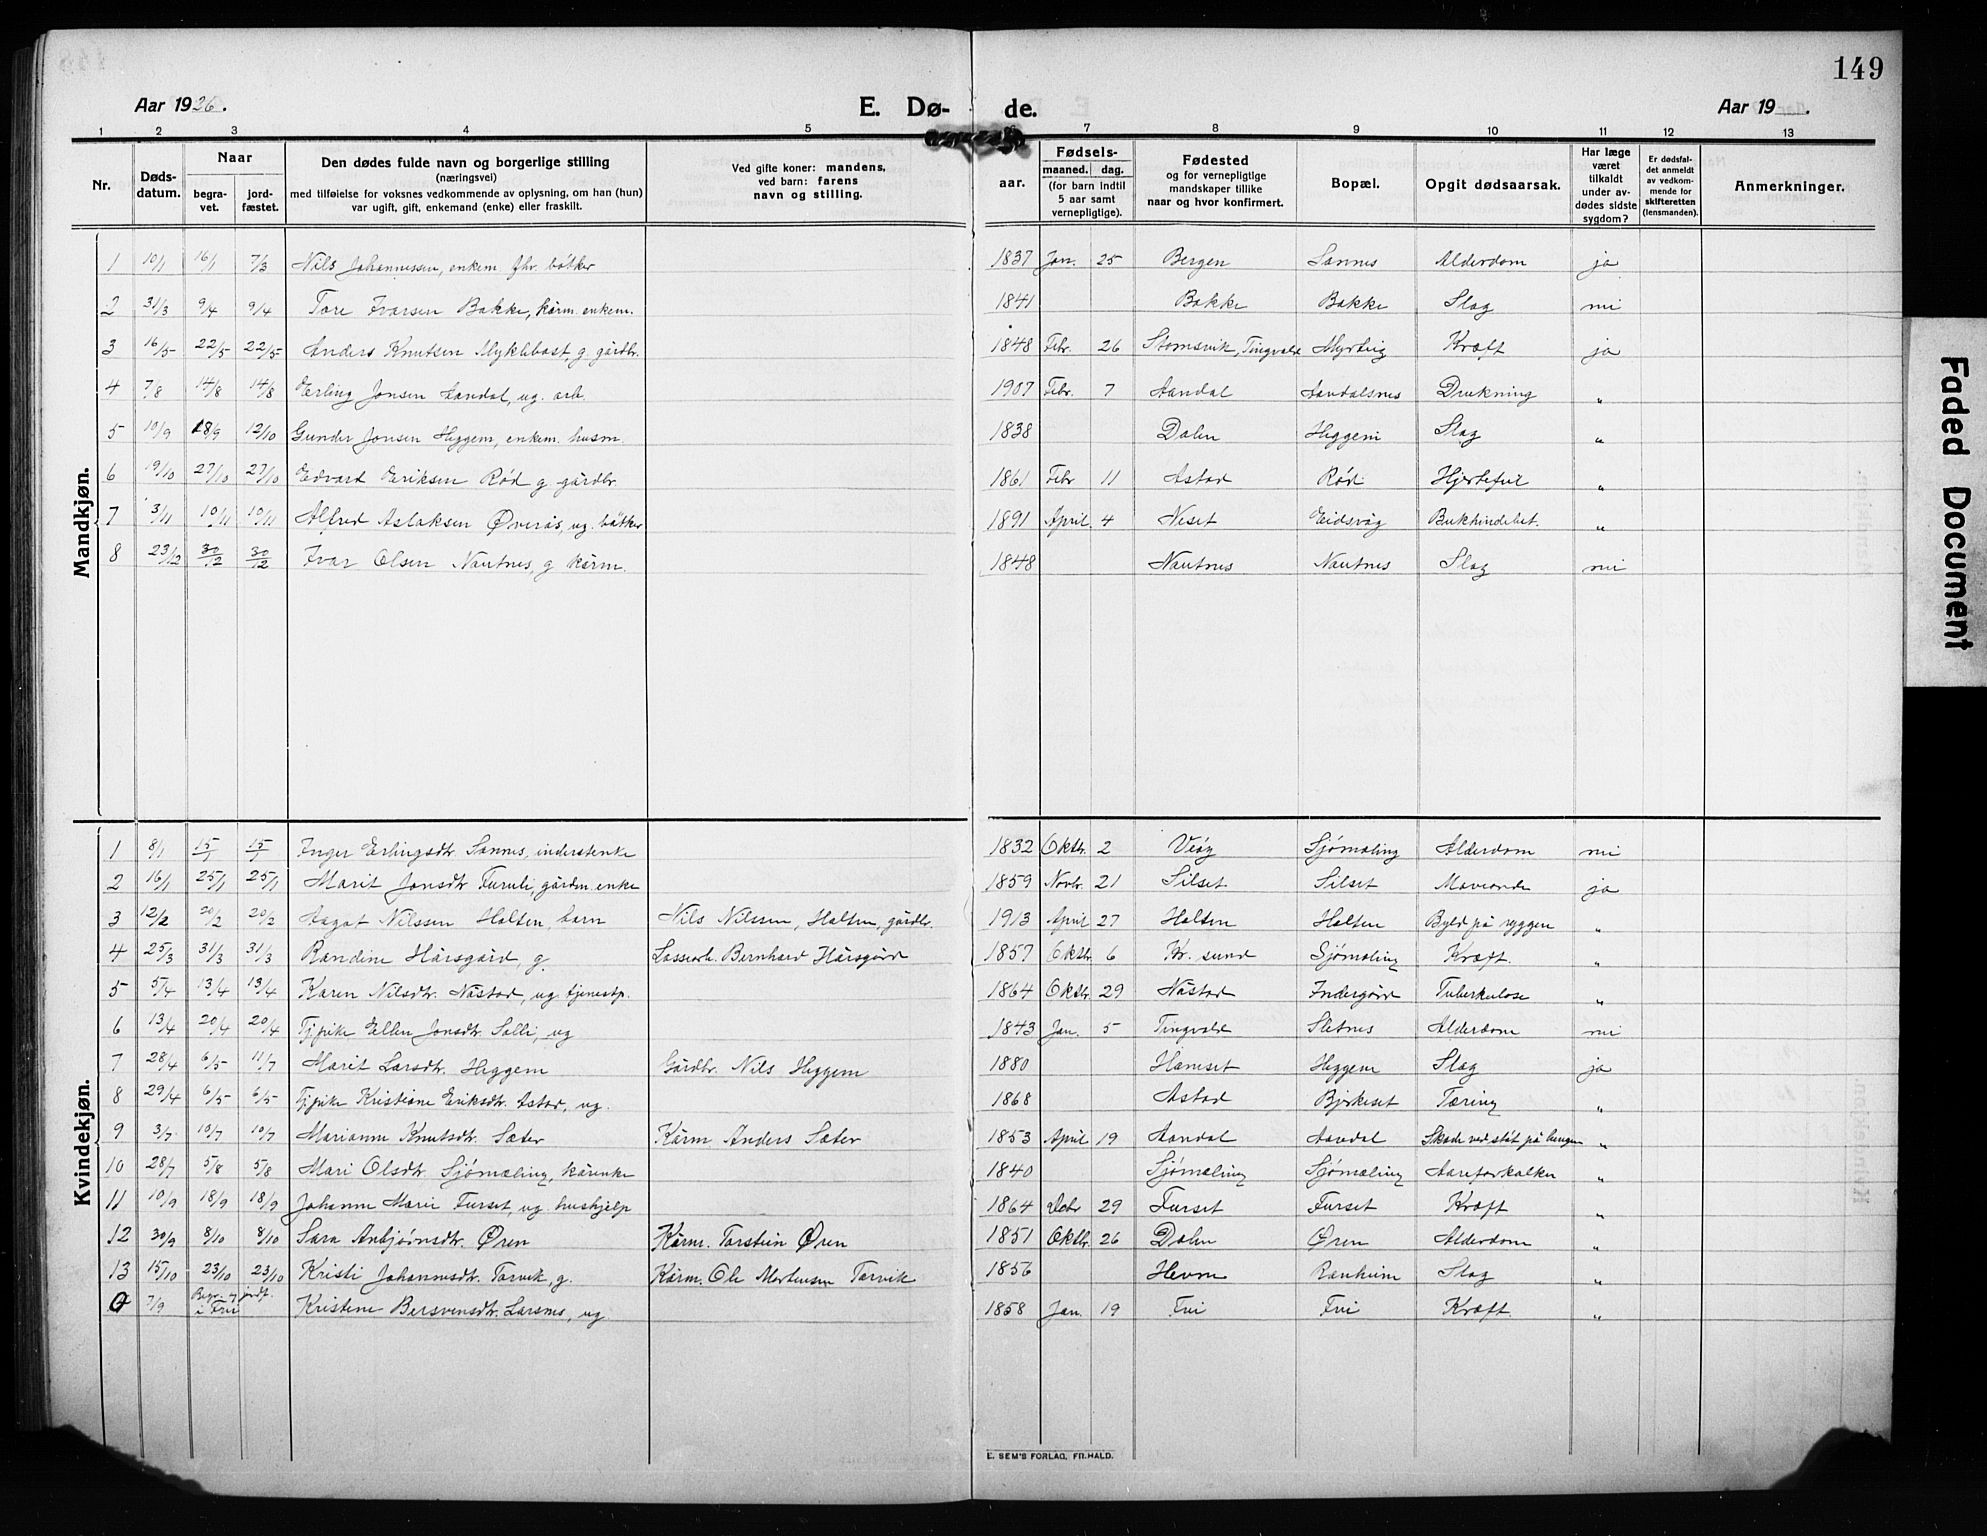 149
Aar 1926.
E. Dø- de.
Aar 19 .
1 2 3 4 5 6 7 8 9 10 11 12 13
Nr. Døds-datum. Naar begra-vet. jord-fæstet. Den dødes fulde navn og borgerlige stilling (næringsvei) med tilføielse for voksnes vedkommende av oplysning, om han (hun) var ugift, gift, enkemand (enke) eller fraskilt. Ved gifte koner: mandens, ved barn: farens navn og stilling. aar. Fødsels- maaned. dag. (for barn indtil 5 aar samt vernepligtige). Fødested og for vernepligtige mandskaper tillike naar og hvor konfirmert. Bopæl. Opgit dødsaarsak. Har læge været tilkaldt under av-dødes sidste sygdom? Er dødsfal-det anmeldt av vedkom-mende for skifteretten (lensmanden). Anmerkninger.
Mandkjøn.
1 10/1 16/1 7/3 Nils Johannessen, enkem. fhv. bøtker 1837 Jan. 25 Bergen Sannes Alderdom ja
2 31/3 9/4 9/4 Tore Ivarsen Bakke, kårm. enkem. 1841 Bakke Bakke Slag nei
3 16/5 22/5 22/5 Anders Knutsen Myklebost, g. gårdbr. 1848 Febr. 26 Stomsvik, Tingvold Kræft ja
4 7/8 14/8 14/8 Erling Jonsen Aandal, ug. arb. 1907 Febr. 7 Aandal Aandalsnes Drukning "
5 10/9 18/9 12/10 Gunder Jonsen Heggem, enkem. husm. 1838 Dalen Heggem Slag "
6 19/10 27/10 27/10 Edvard Eriksen Rød g gårdbr. 1861 Febr 11 Astad Rød Hjertefeil "
7 3/11 10/11 10/11 Alfred Aslaksen Øverås, ug. bøtker 1891 April 4 Neset Eidsvåg Bukhindebet. "
8 23/12 30/12 30/12 Ivar Olsen Nautnes, g kårm. 1848 Nautnes Nautnes Slag nei
Kvindekjøn.
1 8/1 15/1 15/1 Inger Erlingsdtr. Sannes, inderstenke 1832 Oktbr. 2 Veøy Sjømæling Alderdom nei
2 16/1 25/1 25/1 Marit Jonsdtr Furuli, gårdm. enke 1859 Novbr. 21 Silset Silset Maveonde ja
3 12/2 20/2 20/2 Aagot Nilssen Holten, barn Nils Nilssen, Holten, gårdbr. 1913 April 27 Holten Holten Byld på ryggen "
4 25/3 31/3 31/3 Randine Hårsgård, g. Bernhard Hårsgård 1857 Oktbr. 6 Kr. sund Sjømæling Kræft. "
5 5/4 13/4 13/4 Karen Nilsdtr. Nåstad, ug. tjenestp. 1864 Oktbr. 29 Nåstad Indergård Tuberkulose "
6 13/4 20/4 20/4 Tjpike Ellen Jonsdtr. Salli, ug 1843 Jan. 5 Tingvold Sletnes Alderdom nei
7 28/4 6/5 11/7 Marit Larsdtr. Heggem Gårdbr. Nils Heggem 1880 Hamset Heggem Slag ja
8 29/4 6/5 6/5 Tjpike Kristiane Eriksdtr. Astad, ug. 1868 Astad Bjerkeset Tæring "
9 3/7. 10/7 10/7 Marianne Knutsdtr. Sæter Kårm. Anders Sæter 1853 April 19 Aandal Aandal Skade ved støt på lungen "
10 28/7 5/8 5/8 Mari Olsdtr. Sjømæling, kårenke 1840 Sjømæling Sjømæling Aareforkalkn. "
11 10/9 18/9 18/9 Johanne Marie Furset, ug. hushjelp 1864 Debr 29 Furset Furset Kræft "
12 30/9 8/10 8/10 Sara Anbjørnsdtr. Øren Kårm. Torstein Øren 1851 Oktbr. 26 Dalen Øren Alderdom "
13 15/10 23/10 23/10 Kristi Johannesdtr. Torvik, g. Kårm. Ole Mortensen Torvik 1856 Hevne Ranheim Slag "
0 7/9 Begr. og jordf. i Frei Kristine Bersvensdtr. Larsnes, ug 1858 Jan. 19 Frei Frei Kræft. "
E. SEM'S FORLAG, FR.HALD.
Faded Document